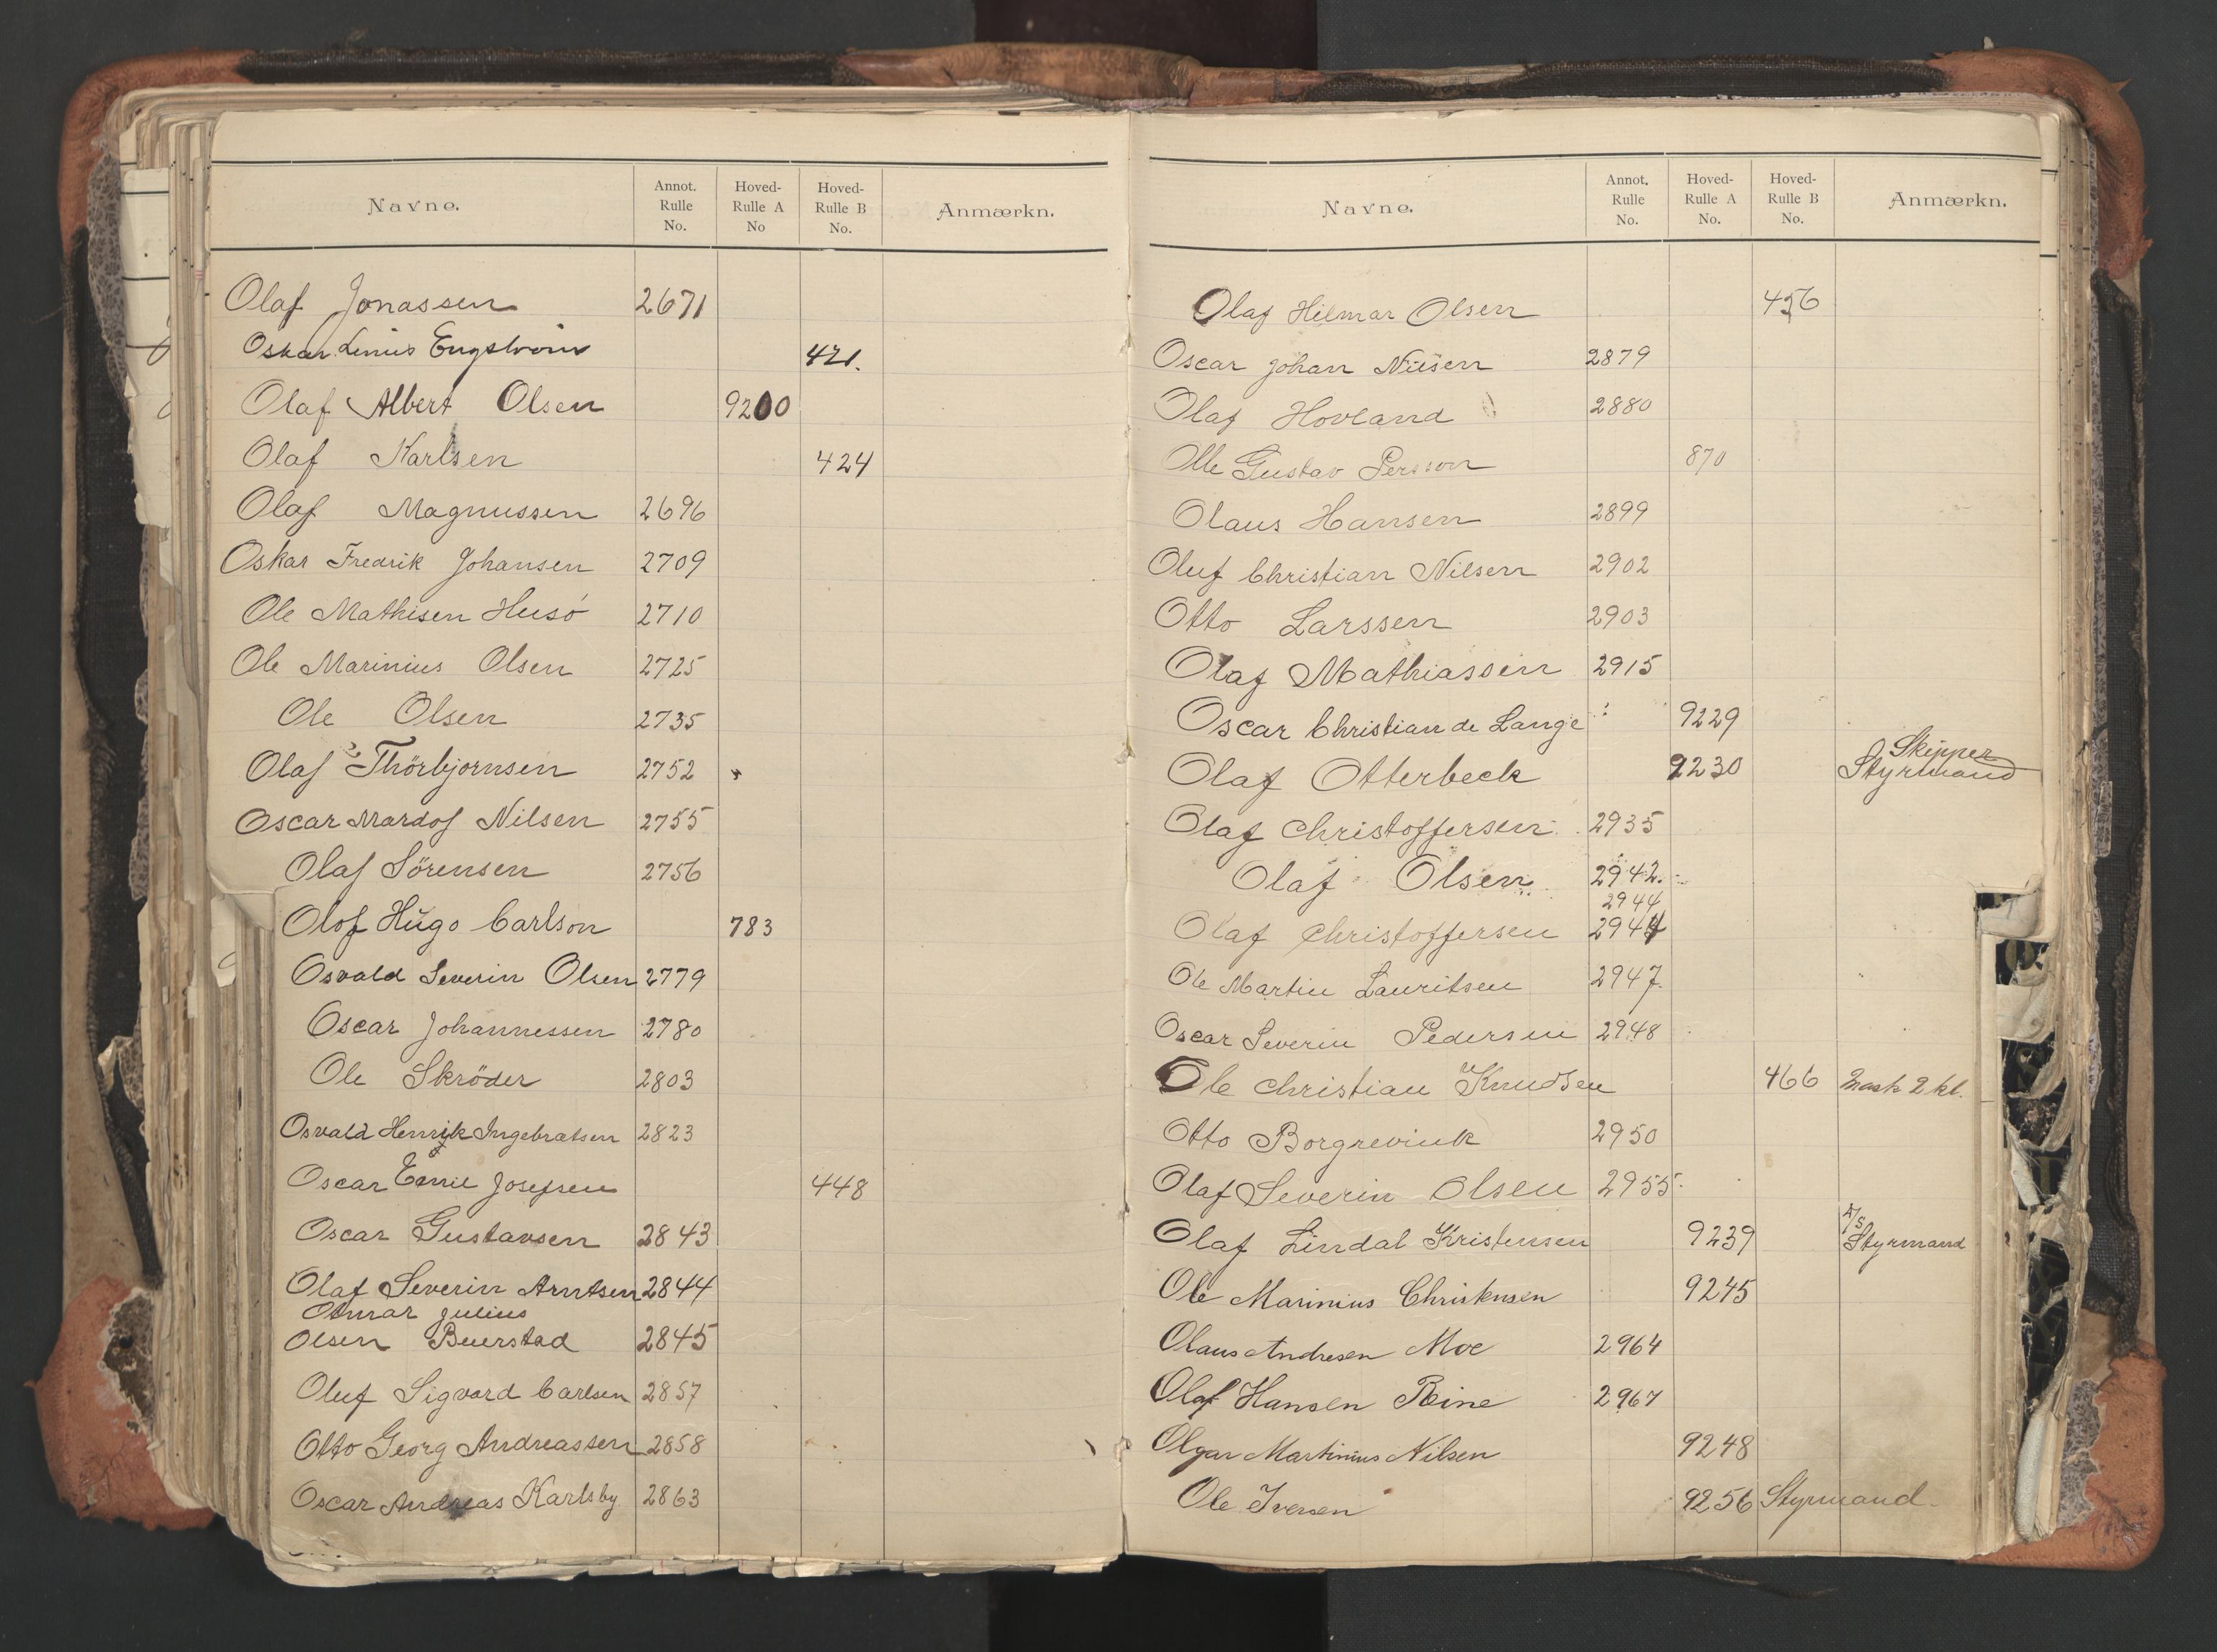 Navne. Annot. Rulle No. Hoved-Rulle A No Hoved-Rulle B No. Anmærkn.
Olaf Jonassen 2671
Oskar Linus Engström 421.
Olaf Albert Olsen 9200
Olaf Karlsen 424
Olaf Magnussen 2696
Oskar Fredrik Johansen 2709
Ole Mathisen Husö 2710
Ole Marinius Olsen 2725
Ole Olsen 2735
Olaf Thorbjornsen 2752
Oscar Mardof Nilsen 2755
Olaf Sörensen 2756
Olof Hugo Carlson 783
Osvald Severin Olsen 2779
Oscar Johannessen 2780
Ole Skröder 2803
Osvald Henrik Ingebratsen 2823
Oscar Emil Josefsen 448
Oscar Gustavsen 2843
Olaf Severin Arntsen 2844
Otmar Julius
Olsen Beuerstad 2845
Oluf Sigvard Carlsen 2857
Otto Georg Andreassen 2858
Oscar Andreas Karlsby 2863
Navne. Annot. Rulle No. Hoved-Rulle A No. Hoved-Rulle B No. Anmærkn.
Olaf Hilmar Olsen 456
Oscar Johan Nilsen 2879
Olaf Hovland 2880
Olle Gustav Persson 870
Olaus Hansen 2899
Oluf Christian Nilsen 2902
Otto Larssen 2903
Olaf Mathiassen 2915
Oscar Christian de Lange 9229
Skipper
Olaf Otterbeck 9230 Styrmand
Olaf Christoffersen 2935
Olaf Olsen 2942.
2944
Olaf Christoffersen 2944
Ole Martin Lauritsen 2947.
Oscar Severin Pedersen 2948
Ole Christian Knudsen 466 Mask 2 kl.
Otto Borgrevink 2950
Olaf Severin Olsen 2955
A/S
Olaf Lindal Kristensen 9239 Styrmand
Ole Marinius Christensen 9245
Olaus Andresen Moe 2964
Olaf Hansen Reine 2967
Olgar Martinius Nilsen 9248
Ole Iversen 9256 Styrmand